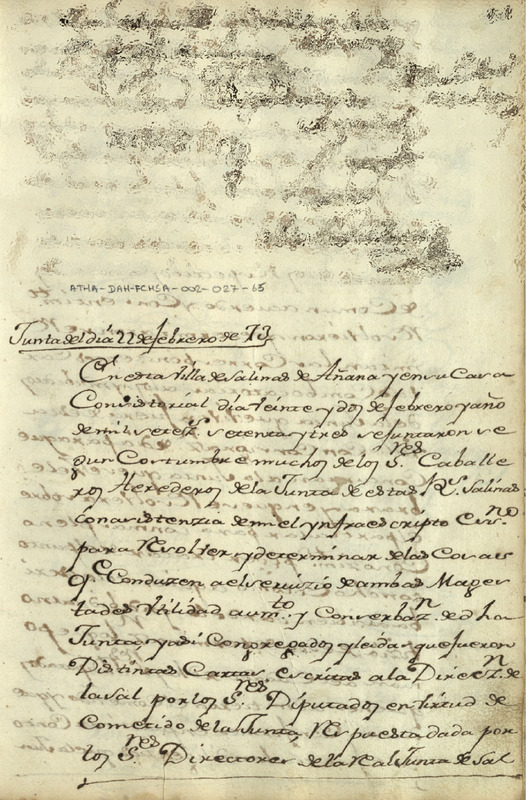 ATHA-DAH-FCHSA-002-027-65
Junta del dia 22 de febrero de 73
En esta Villa de Salinas de Añana y en su Casa
Consistorial dia Veinte y dos de febrero y año
de mil setez.s setenta y tres se Juntaron se
gun Costumbre muchos de los S.res Caballe
ros Herederos de la Junta de estas R.s Salinas
con asistenzia de mi el ynfraescripto Ess.no
para Resolver y determinar de las Cosas
q.e Conduzen a el servizio de ambas Mages
tades Utilidad aum.to y Conserbaz.n de dha
Junta y asi Congregados y leidas que fueron
Distintas Cartas escritas a la Direcz.n de
la sal por los S.res Diputados en Virtud de
Cometido de la Junta, Respuesta dada por
los S.res Directores de la Real Junta de Sal